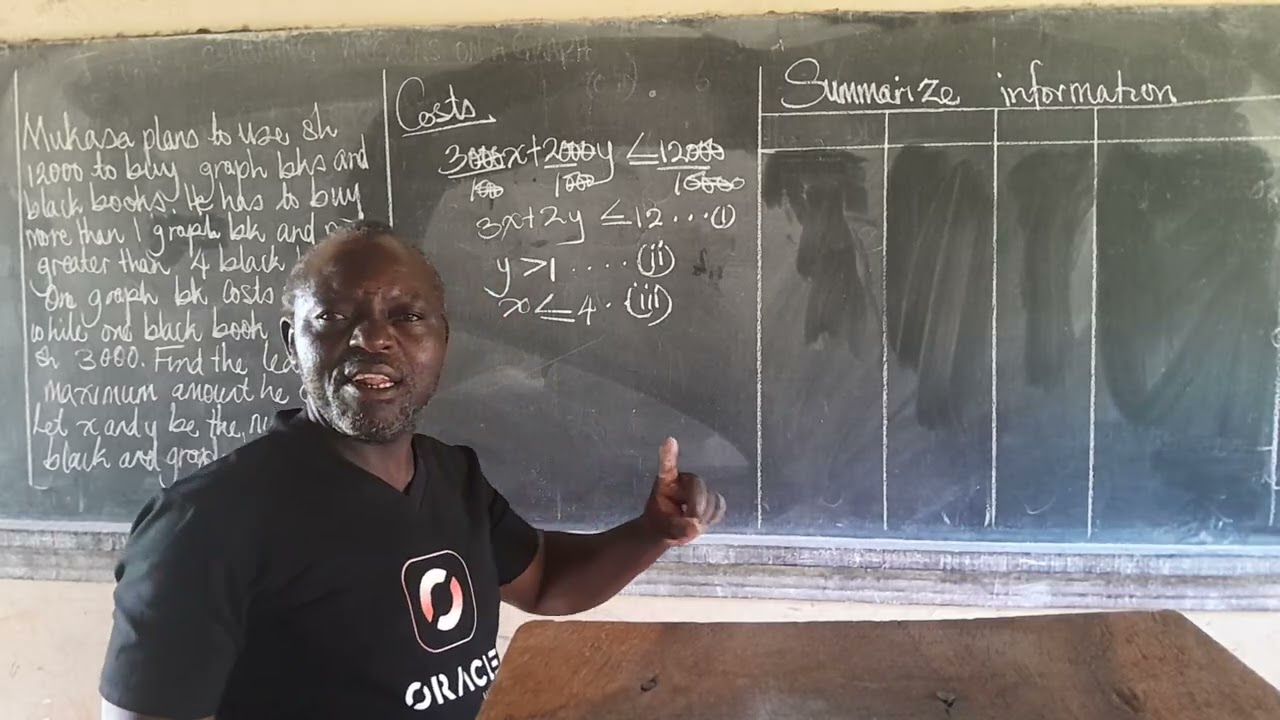 SHADING REGIONS ON A GRAPH
Mukasa plans to use sh
12000 to buy graph bks and
black books. He has to buy
more than 1 graph bk and
greater than 4 black
On graph bk costs
while one black book
sh 3000. Find the
maximum amount he
Let x and y be the
black and graph
Costs
3000x+2000y ≤12000
1000 1000
3x+2y ≤12 ....(i)
y >1 .... (ii)
x ≤ 4 . (iii)
Summarize information
ORACLE